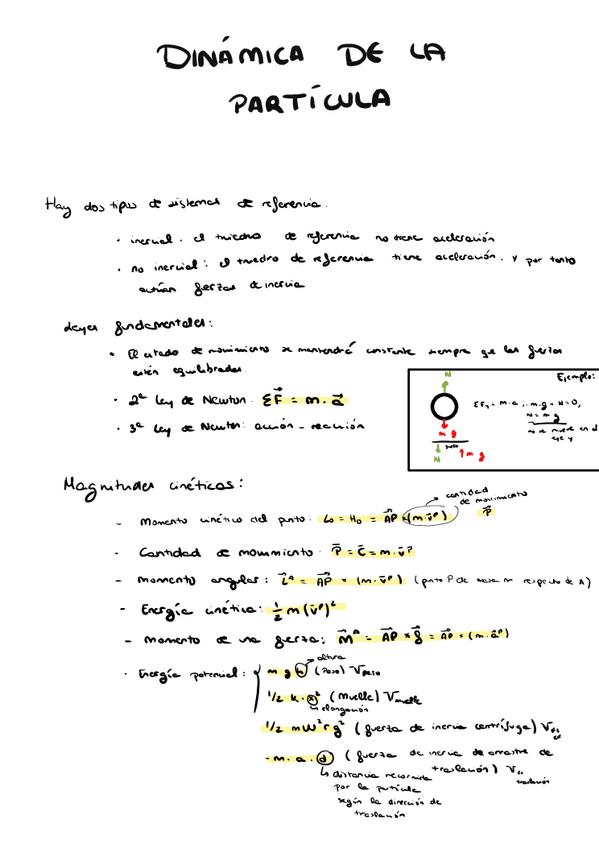 DINÁMICA DE LA
PARTÍCULA
Hay dos tipos de sistemas de referencia.
· inercial. el triedro de referencia no tiene aceleración
· no inercial: el triedro de referencia tiene aceleración. y por tanto
actúan fuerzas de inercia
Leyes fundamentales:
· El estado de movimiento se mantendrá constante siempre que las fuerzas
estén equilibradas
· 2ª Ley de Newton: ΣF⃗ = m·a⃗
· 3ª Ley de Newton: acción-reacción
Ejemplo:
N
mg
suelo
N
mg
m·g
N = mg
no se mueve en el
eje y
Magnitudes cinéticas:
cantidad
de movimiento
p⃗
- Momento cinético del punto: L₀ = H₀ = AP⃗ × (m·v̄ᴾ)
- Cantidad de movimiento: p̄ = C̄ = m·v̄ᴾ
- momento angular: L⃗ᴬ = AP⃗ × (m·v̄ᴾ) (punto P de masa m respecto de A)
- Energía cinética: ½ m (v̄ᴾ)²
- momento de una fuerza: M⃗ᴬ = AP⃗ × f⃗ = AP⃗ × (m·āᴾ)
· Energía potencial: m g h (peso) V peso
altura
1/2 k·x² (muelle) V muelle
elongación
1/2 mω²rg² (fuerza de inercia centrífuga)
-m·a·d (fuerza de inercia de arrastre de
traslación)
traslación
distancia recorrida
por la partícula
según la dirección de
traslación